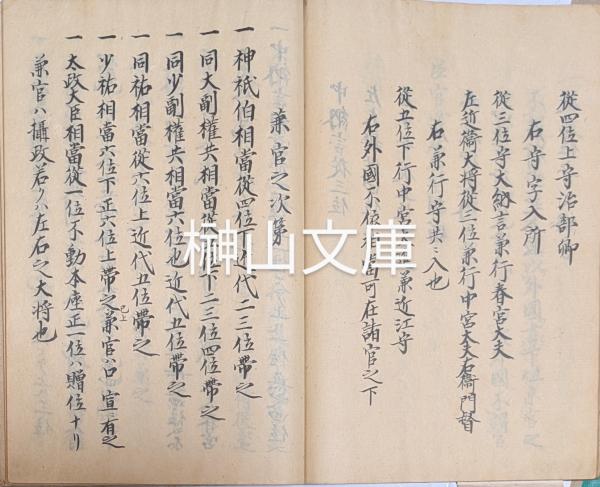 從四位上守治部卿
右守字入所
從三位守大納言兼行春宮大夫
左近衛大将從三位兼行中宮大夫右衛門督
右兼行守共ニ入也
從五位下行中宮大 兼近江守
右外國不 位 當可在諸官之下
兼官之次第
一 神祇伯相當從四位下近代二三位帶之
一 同大副權共相當從 位下二三位四位帶之
一 同少副權共相當六位也近代五位帶之
一 同祐相當從六位上近代五位帶之
一 少祐相當六位下正六位上帶之兼官ハ口宣ニ有之
已上
一 太政大臣相當從一位不動本座正一位ハ贈位ナリ
兼官ハ攝政若クハ左右之大将也
榊山文庫